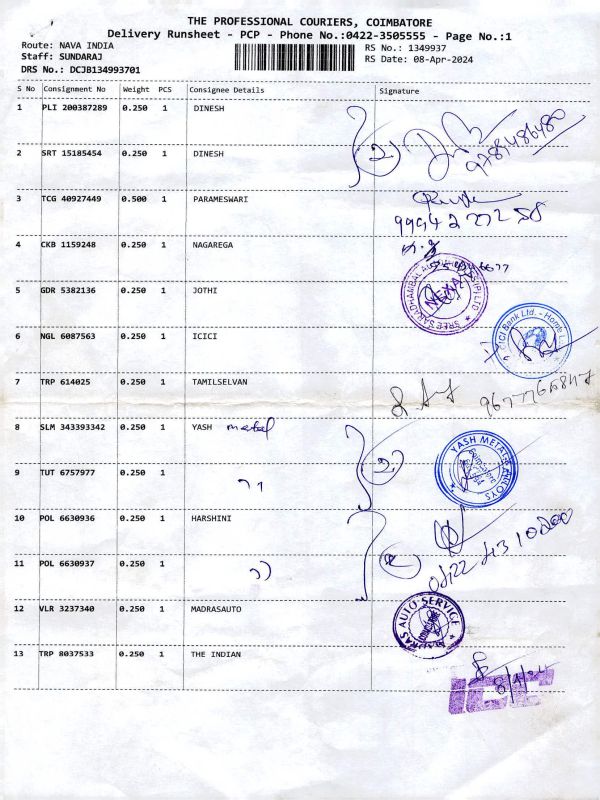 THE PROFESSIONAL COURIERS, COIMBATORE
Delivery Runsheet - PCP - Phone No.:0422-3505555 - Page No.:1
Route: NAVA INDIA
Staff: SUNDARAJ
DRS No.: DCJB134993701
RS No.: 1349937
RS Date: 08-Apr-2024
S No Consignment No Weight PCS Consignee Details Signature
1 PLI 200387289 0.250 1 DINESH
2 SRT 15185454 0.250 1 DINESH
2
3 TCG 40927449 0.500 1 PARAMESWARI
4 CKB 1159248 0.250 1 NAGAREGA
5 GDR 5382136 0.250 1 JOTHI
NEXA
6 NGL 6087563 0.250 1 ICICI
ICICI Bank Ltd. - Home
7 TRP 614025 0.250 1 TAMILSELVAN
8 SLM 343393342 0.250 1 YASH metal
YASH METALS & ALLOYS
9 TUT 6757977 0.250 1
2
10 POL 6630936 0.250 1 HARSHINI
11 POL 6630937 0.250 1
12 VLR 3237340 0.250 1 MADRASAUTO
MADRAS AUTO SERVICE
13 TRP 8037533 0.250 1 THE INDIAN
8/4/24